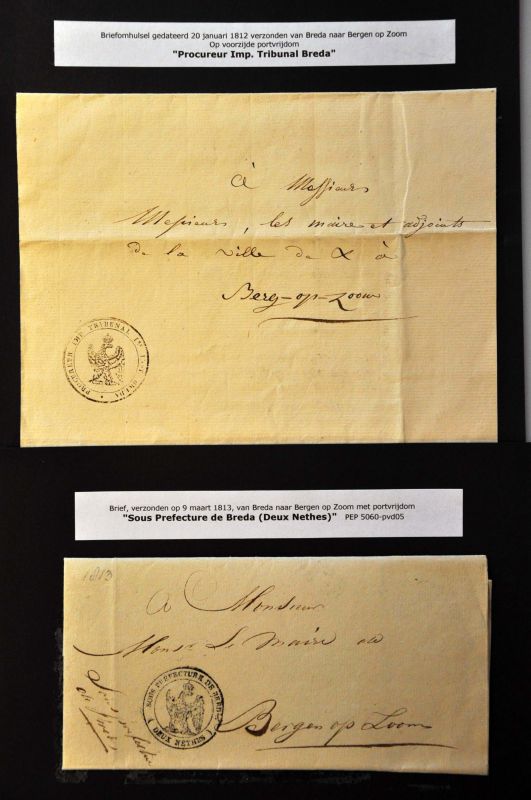 Briefomhulsel gedateerd 20 januari 1812 verzonden van Breda naar Bergen op Zoom
Op voorzijde portvrijdom
"Procureur Imp. Tribunal Breda"
à Messieurs
Messieurs, les maire et adjoints
de la ville de & à
Berg-op-Zoom
PROCUREUR IMP TRIBUNAL BREDA
Brief, verzonden op 9 maart 1813, van Breda naar Bergen op Zoom met portvrijdom
"Sous Prefecture de Breda (Deux Nethes)" PEP 5060-pvd05
1813
A Monsieur
Mons. Le Maire de
Bergen op Zoom
SOUS PREFECTURE DE BREDA
(DEUX NETHES)